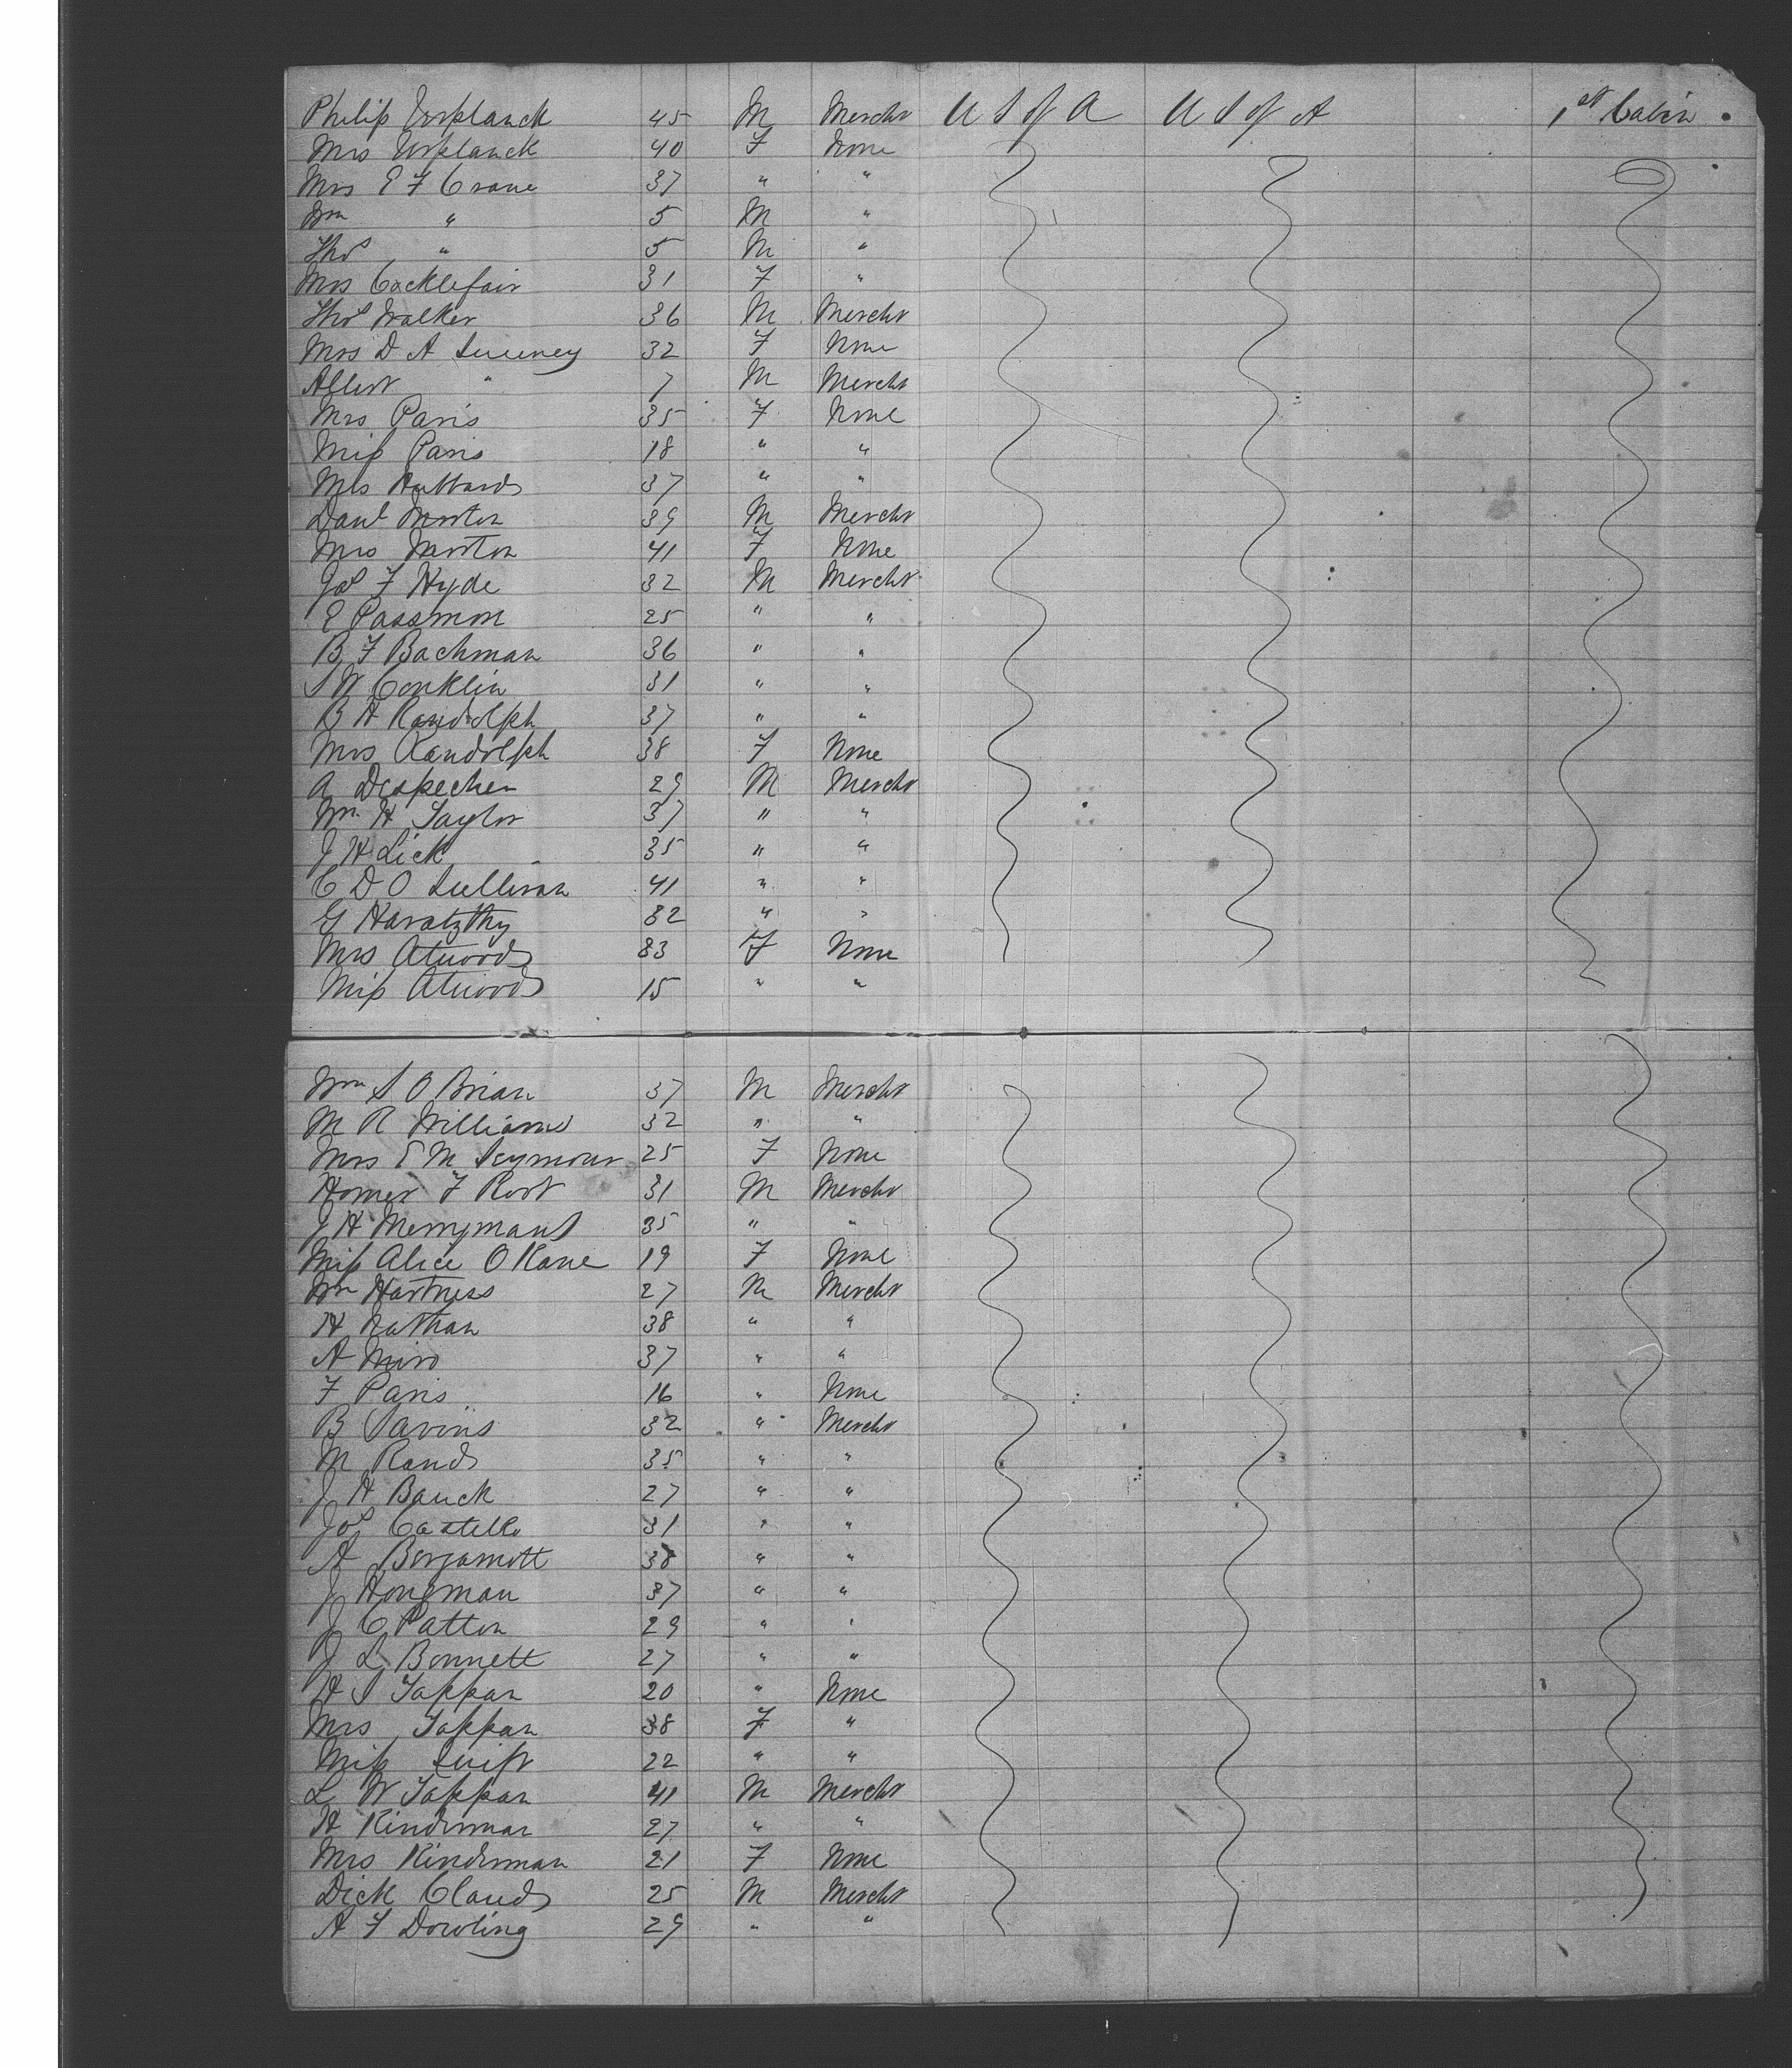 Philip Verplanck 45 M Mercht U S of A U S of A 1st Cabin
Mrs Verplanck 40 F None
Mrs E F Crane 37 " "
Wm " 5 M "
Thos " 5 M "
Mrs Cocklefair 31 F "
Thos Walker 36 M Mercht
Mrs D A Sweeney 32 F None
Albert " 7 M Mercht
Mrs Paris 35 F None
Miss Paris 18 " "
Mrs Hubbard 37 " "
Danl Morton 39 M Mercht
Mrs Morton 41 F None
Jos F Hyde 32 M Mercht
E Passmore 25 " "
B F Bachman 36 " "
S W Conklin 31 " "
B H Randolph 37 " "
Mrs Randolph 38 F None
A Despecher 29 M Mercht
Wm H Taylor 37 " "
J H Lick 35 " "
C D O Sullivan 41 " "
G Haratzthy 32 " "
Mrs Atwood 33 F None
Miss Atwood 15 " "
Wm S O Brian 37 M Mercht
M R Williams 32 " "
Mrs E M Seymour 25 F None
Homer F Root 31 M Mercht
J H Merrymans 35 " "
Miss Alice O Kane 19 F None
Wm Hartness 27 M Mercht
H Nathan 38 " "
A Miro 37 " "
F Paris 16 " None
B 32 " Mercht
M Rand 35 " "
J H Bauck 27 " "
Jos Castello 31 " "
A Bergamott 38 " "
J Hongman 37 " "
J C Patton 29 " "
J L Bonnett 27 " "
H S Tappan 20 " None
Mrs Tappan 38 F "
Miss Swift 22 " "
L W Tappan 41 M Mercht
H Kinderman 27 " "
Mrs Kinderman 21 F None
Dick Claud 25 M Mercht
A F Dowling 29 " "